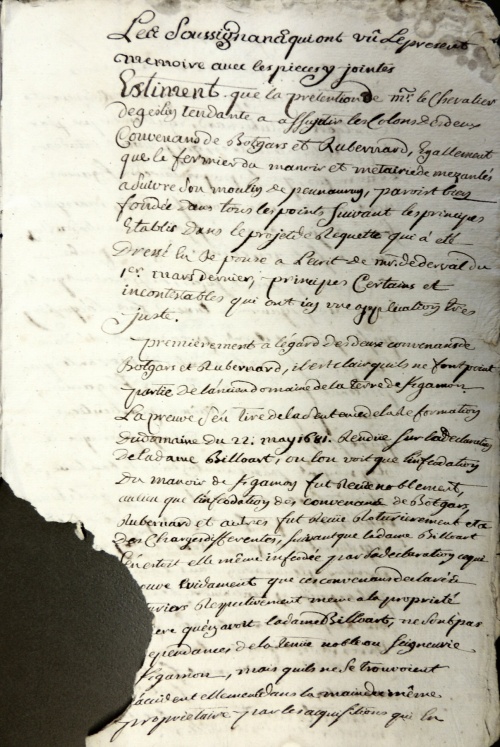 Les Soussignans qui ont vû Le present
memoire avec les pieces y jointes
Estiment que la pretention de mr. le Chevalier
de geslin tendante a assujetir les Colons des deux
Convenans de Botgars et Rubernard, Egallement
que le fermier du manoir et metairie de mezanlés
a suivre Son moulin de pennanroy, paroist bien
fondée dans tous les points Suivant les principes
Etablis dans le projet de Requette qui a été
Dressé En Reponse a L'ecrit de mr. de derval du
1er. mars dernier, principes Certains et
incontestables qui ont icy une application tres
juste.
premierement a l'égard des deux convenans de
Botgars et Rubernard, il est clair qu'ils ne font point
partie de l'ancien domaine de la terre de figamon
La preuve S'en tire de la Sentence de la Reformation
du domaine du 22. may 1681. Rendüe Sur la declaration
de la dame Billoart, ou l'on voit que l'infeodation
Du manoir de figamon fut Reçue noblement,
au lieu que l'infeodation des convenans de Botgars,
Rubernard et autres fut Reçue Roturierement et a
Des Charges differentes, suivant que la dame Billoart
l'en estoit elle même infeodée par la declaration ce qui
Evidament que ces convenans
Respectivement même a la proprieté
qu'en avoit la dame Billoart, ne Sont pas
dependances de la tenüe noble ou Seigneurie
figamon, mais qu'ils ne Se trouvoient
accidentellement dans la main du même
proprietaire par les acquisitions qui en